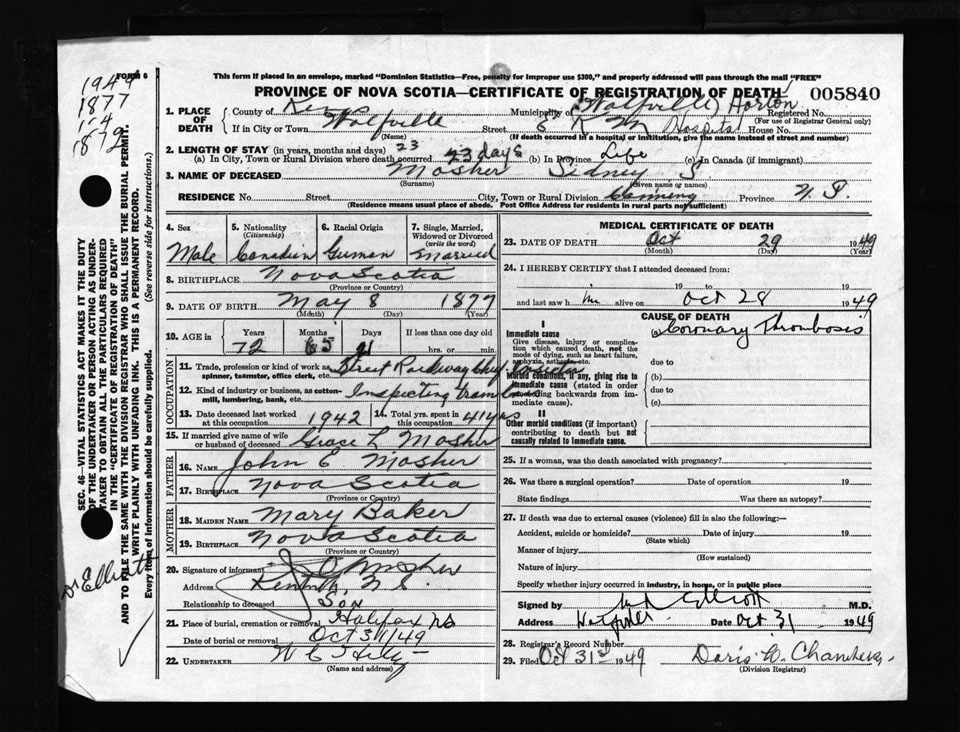 1949
1877
114
1872
FORM 6
This form if placed in an envelope, marked "Dominion Statistics—Free, penalty for improper use $300," and properly addressed will pass through the mail "FREE"
PROVINCE OF NOVA SCOTIA—CERTIFICATE OF REGISTRATION OF DEATH 005840
1. PLACE OF DEATH
County of Kings Municipality of (Wolfville) Horton Registered No.
(For use of Registrar General only)
If in City or Town Wolfville Street Hospital House No.
(Name) (If death occurred in a hospital or institution, give the name instead of street and number)
2. LENGTH OF STAY (in years, months and days) 23
(a) In City, Town or Rural Division where death occurred 23 days (b) In Province Life (c) In Canada (if immigrant)
3. NAME OF DECEASED Mosher Sidney S
(Surname) (Given name or names)
RESIDENCE No. Street City, Town or Rural Division Canning Province N. S.
(Residence means usual place of abode. Post Office Address for residents in rural parts not sufficient)
4. Sex Male
5. Nationality (Citizenship) Canadian
6. Racial Origin German
7. Single, Married, Widowed or Divorced (write the word) Married
8. BIRTHPLACE Nova Scotia
(Province or Country)
9. DATE OF BIRTH May 8 1877
(Month) (Day) (Year)
10. AGE in Years Months Days If less than one day old
72 5 21 hrs. or min.
OCCUPATION
11. Trade, profession or kind of work as spinner, teamster, office clerk, etc. Street Railway
12. Kind of industry or business, as cotton-mill, lumbering, bank, etc. Inspecting
13. Date deceased last worked at this occupation 1942
14. Total yrs. spent in this occupation 41 yrs
15. If married give name of wife or husband of deceased Grace L Mosher
FATHER
16. NAME John E Mosher
17. BIRTHPLACE Nova Scotia
(Province or Country)
MOTHER
18. MAIDEN NAME Mary Baker
19. BIRTHPLACE Nova Scotia
(Province or Country)
20. Signature of informant Mosher
Address N. S.
Relationship to deceased Son
21. Place of burial, cremation or removal Halifax NS
Date of burial or removal Oct 31/49
22. UNDERTAKER
(Name and address)
MEDICAL CERTIFICATE OF DEATH
23. DATE OF DEATH Oct 29 1949
(Month) (Day) (Year)
24. I HEREBY CERTIFY that I attended deceased from:
19 to 19
and last saw h im alive on Oct 28 1949
CAUSE OF DEATH
I
Immediate cause (a) Coronary Thrombosis
Give disease, injury or complication which caused death, not the mode of dying, such as heart failure, asphyxia, asthenia, etc. due to
Morbid conditions, if any, giving rise to immediate cause (stated in order proceeding backwards from immediate cause). (b)
due to
(c)
II
Other morbid conditions (if important) contributing to death but not causally related to immediate cause.
25. If a woman, was the death associated with pregnancy?
26. Was there a surgical operation? Date of operation 19
State findings Was there an autopsy?
27. If death was due to external causes (violence) fill in also the following:—
Accident, suicide or homicide? Date of injury 19
(State which)
Manner of injury
(How sustained)
Nature of injury
Specify whether injury occurred in industry, in home, or in public place
Signed by Elliott M.D.
Address Wolfville Date Oct 31 1949
28. Registrar's Record Number
29. Filed Oct 31st 1949 Doris W. Chambers
(Division Registrar)
SEC. 46—VITAL STATISTICS ACT MAKES IT THE DUTY
OF THE UNDERTAKER OR PERSON ACTING AS UNDER-
TAKER TO OBTAIN ALL THE PARTICULARS REQUIRED
IN THE "CERTIFICATE OF REGISTRATION OF DEATH"
AND TO FILE THE SAME WITH THE DIVISION REGISTRAR WHO SHALL ISSUE THE BURIAL PERMIT.
WRITE PLAINLY WITH UNFADING INK. THIS IS A PERMANENT RECORD.
Every item of information should be carefully supplied. (See reverse side for instructions.)
Dr Elliott